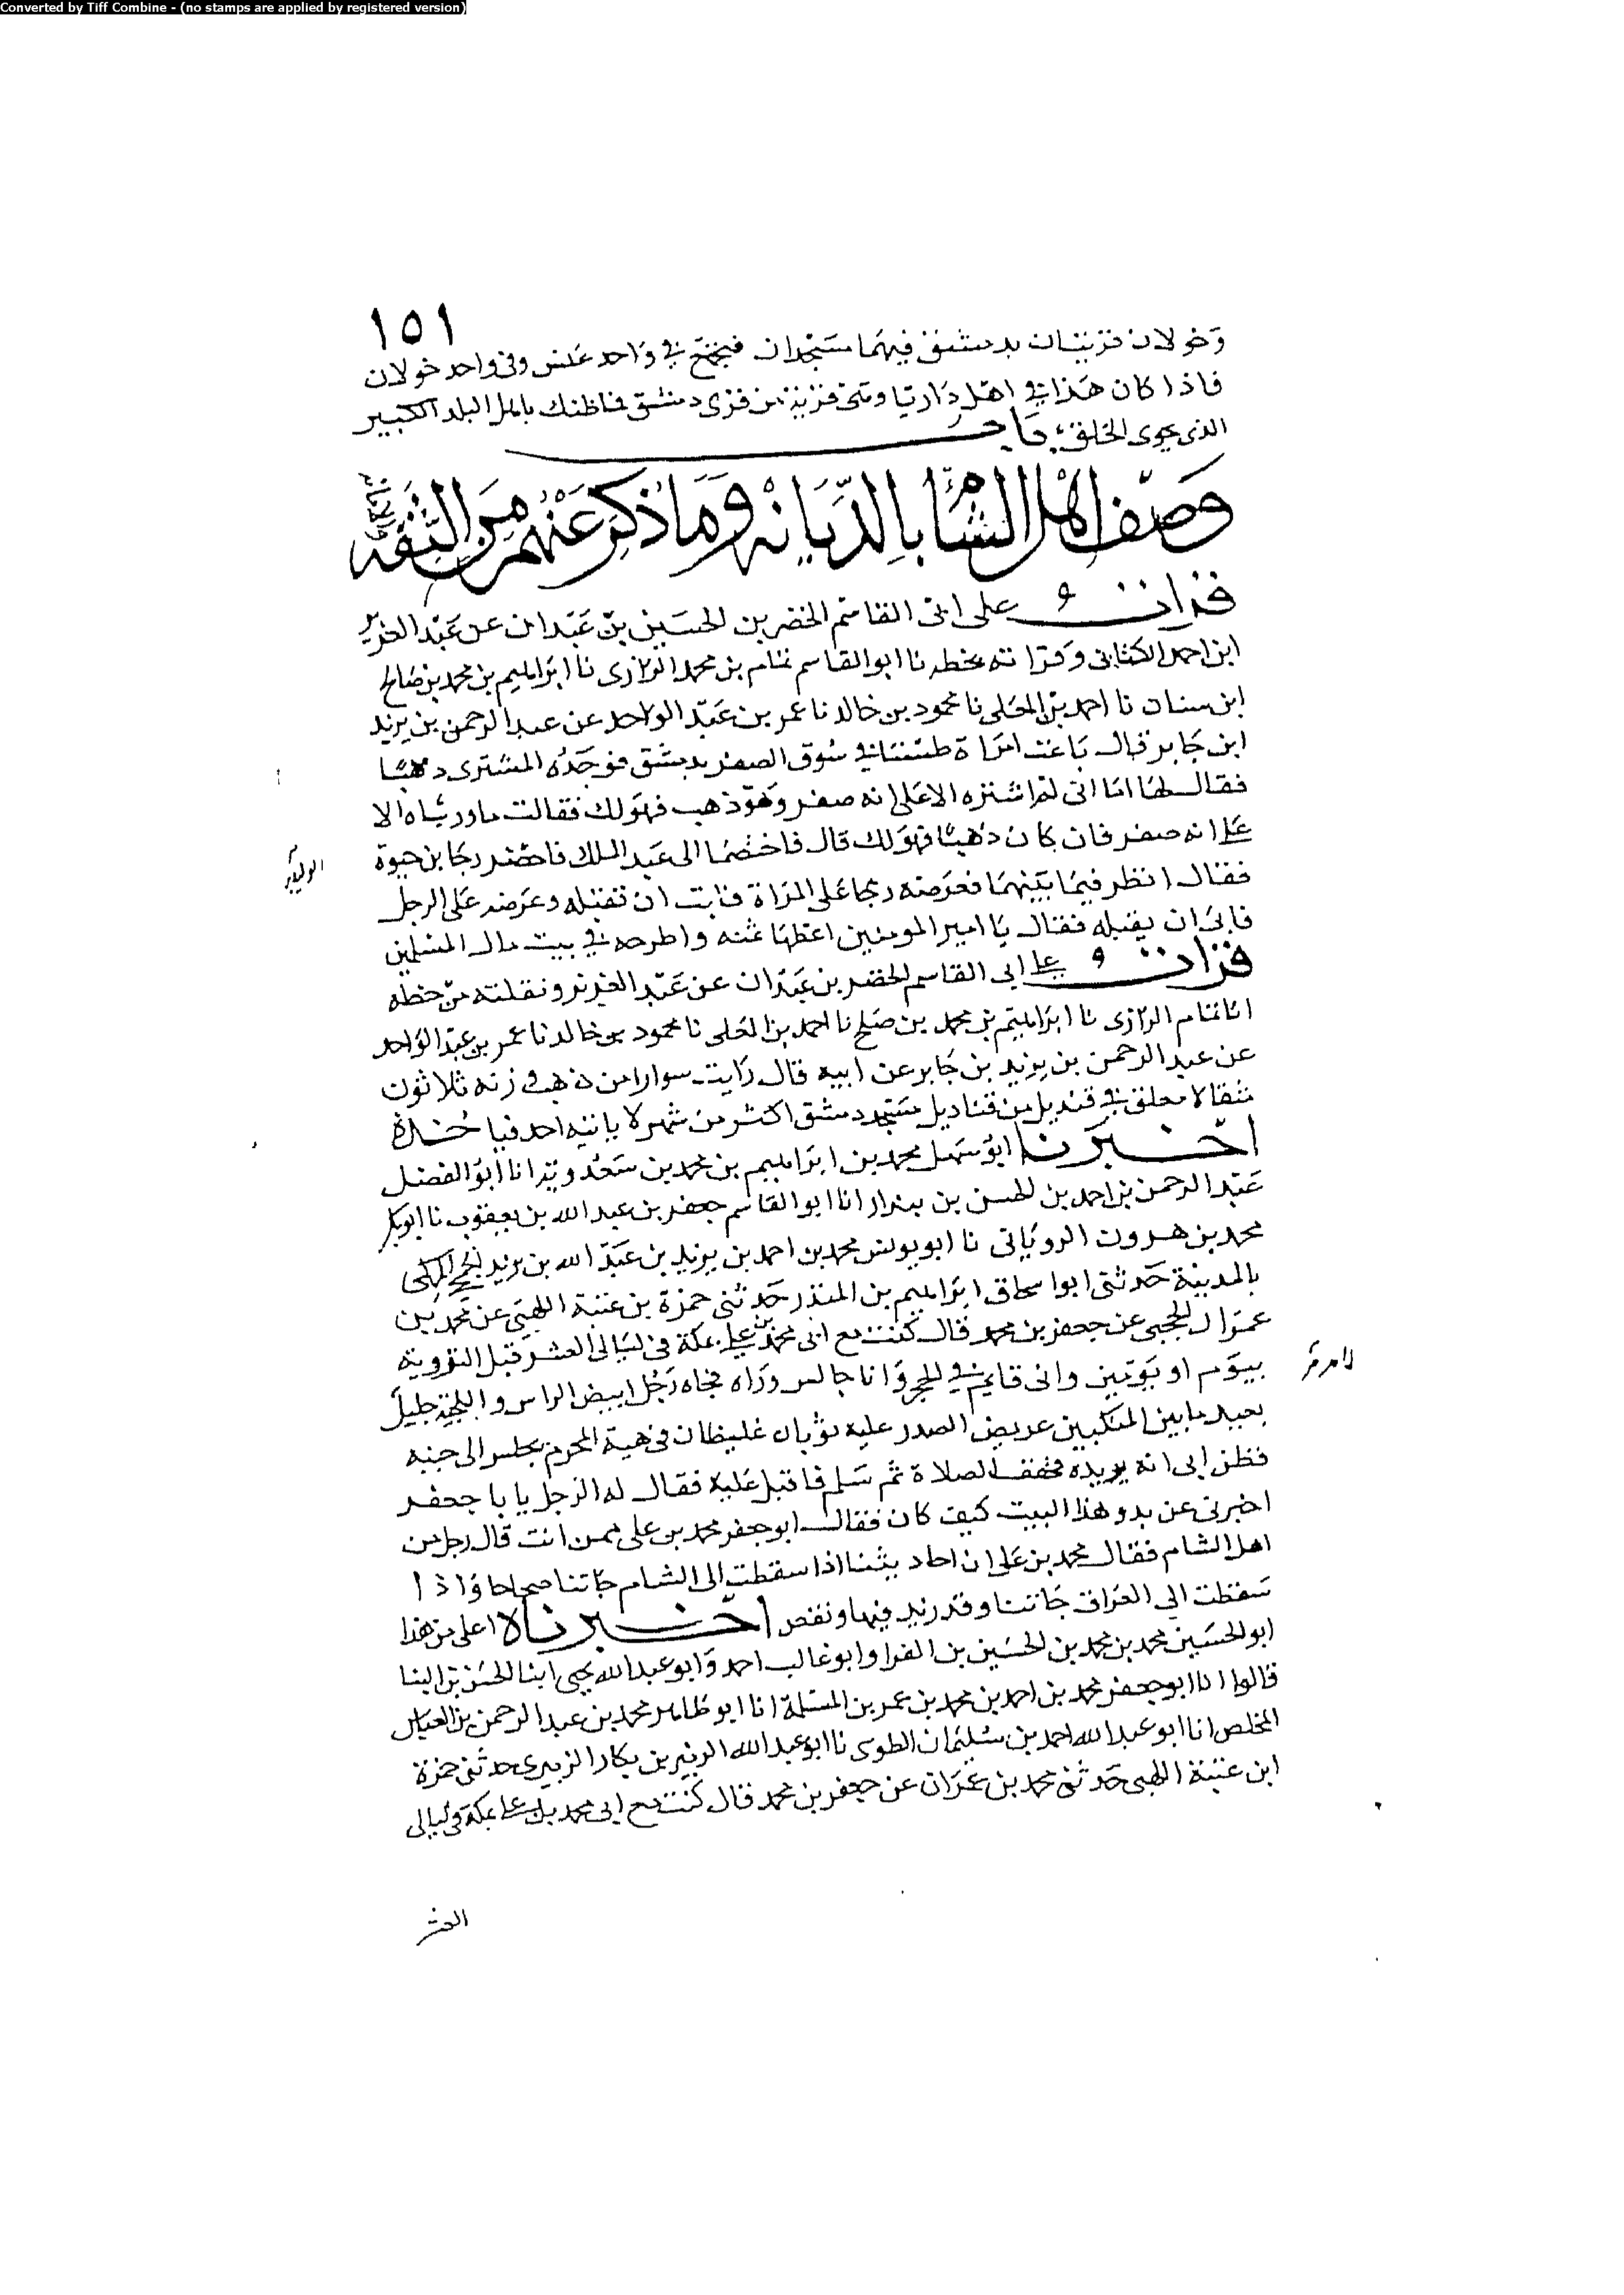 Converted by Tiff Combine - (no stamps are applied by registered version)
١٥١
وخولان قريتان بدمشق فيهما مسجدان فيجمع في واحد عنس وفي واحد خولان
فاذا كان هذا في اهل داريا وهى قرية من قرى دمشق فما ظنك باهل البلد الكبير
الذي يحوى الخلق باب
وصف اهل الشام بالديانه وما ذكر عنهم من الثقه
قرات على ابى القاسم الخضر بن الحسين بن عبدان عن عبد العزيز
ابن احمد الكتانى وقراته بخطه نا ابو القاسم تمام بن محمد الرازى نا ابراهيم بن محمد بن صالح
ابن سنان نا احمد بن المعلى نا محمود بن خالد نا عمر بن عبد الواحد عن عبد الرحمن بن يزيد
ابن جابر قال باعت امراة طستا في سوق الصفر بدمشق فوجده المشترى ذهبا
فقال لها اما انى لم اشتره الا على انه صفر وهو ذهب فهو لك فقالت ما ورثناه الا
على انه صفر فان كان ذهبا فهو لك قال فاختصما الى عبد الملك فاحضر رجا بن حيوة
الوليد
فقال انظر فيما بينهما فعرضه رجا على المراة فابت ان تقبله وعرضه على الرجل
فابى ان يقبله فقال يا امير المومنين اعطها ثمنه واطرحه في بيت مال المسلمين
قرات على ابى القاسم الخضر بن عبدان عن عبد العزيز ونقلته من خطه
انا تمام الرازى نا ابراهيم بن محمد بن صلح نا احمد بن المعلى نا محمود بن خالد نا عمر بن عبد الواحد
عن عبد الرحمن بن يزيد بن جابر عن ابيه قال رايت سوارا من ذهب وزنه ثلاثون
مثقالا معلق في قنديل من قناديل مسجد دمشق اكثر من شهر لا ياتيه احد فياخذه
اخبرنا ابو سهل محمد بن ابراهيم بن محمد بن سعدويه انا ابو الفضل
عبد الرحمن بن احمد بن الحسن بن بندار انا ابو القاسم جعفر بن عبد الله بن يعقوب نا ابو بكر
محمد بن هرون الرويانى نا ابو يونس محمد بن احمد بن يزيد بن عبد الله بن يزيد الجمحى المكى
بالمدينة حدثنى ابو اسحاق ابراهيم بن المنذر حدثنى حمزة بن عتبة اللهبى عن محمد بن
عمران الحجبى عن جعفر بن محمد قال كنت مع ابى محمد بن على بمكة فى ليالى العشر قبل التروية
بيوم او يومين وابى قايم في الحجر وانا جالس وراه فجاه رجل ابيض الراس واللحية جليل
بعيد ما بين المنكبين عريض الصدر عليه ثوبان غليظان فى هيئة المحرم فجلس الى جنبه
فظن ابى انه يريده فخفف الصلاة ثم سلم فاقبل عليه فقال له الرجل يا با جعفر
اخبرنى عن بدو هذا البيت كيف كان فقال ابو جعفر محمد بن على ممن انت قال رجل من
اهل الشام فقال محمد بن على ان احاديثنا اذا سقطت الى الشام جاتنا صحاحا واذا
سقطت الى العراق جاتنا وقد زيد فيها ونقص اخبرناه اعلى من هذا
ابو الحسين محمد بن محمد بن الحسين بن الفرا وابو غالب احمد وابو عبد الله يحيى ابنا الحسن بن البنا
قالوا انا ابو جعفر محمد بن احمد بن محمد بن عمر بن المسلمة انا ابو طاهر محمد بن عبد الرحمن بن العباس
المخلص انا ابو عبد الله احمد بن سليمان الطوسى نا ابو عبد الله الزبير بن بكار الزبيرى حدثنى حمزة
ابن عتبة اللهبى حدثنى محمد بن عمران عن جعفر بن محمد قال كنت مع ابى محمد بن على بمكة في ليالى
العشر